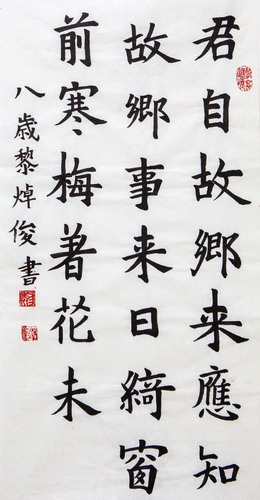 君自故鄉來應知
故鄉事来日綺窗
前寒梅著花未
八歲黎焯俊書